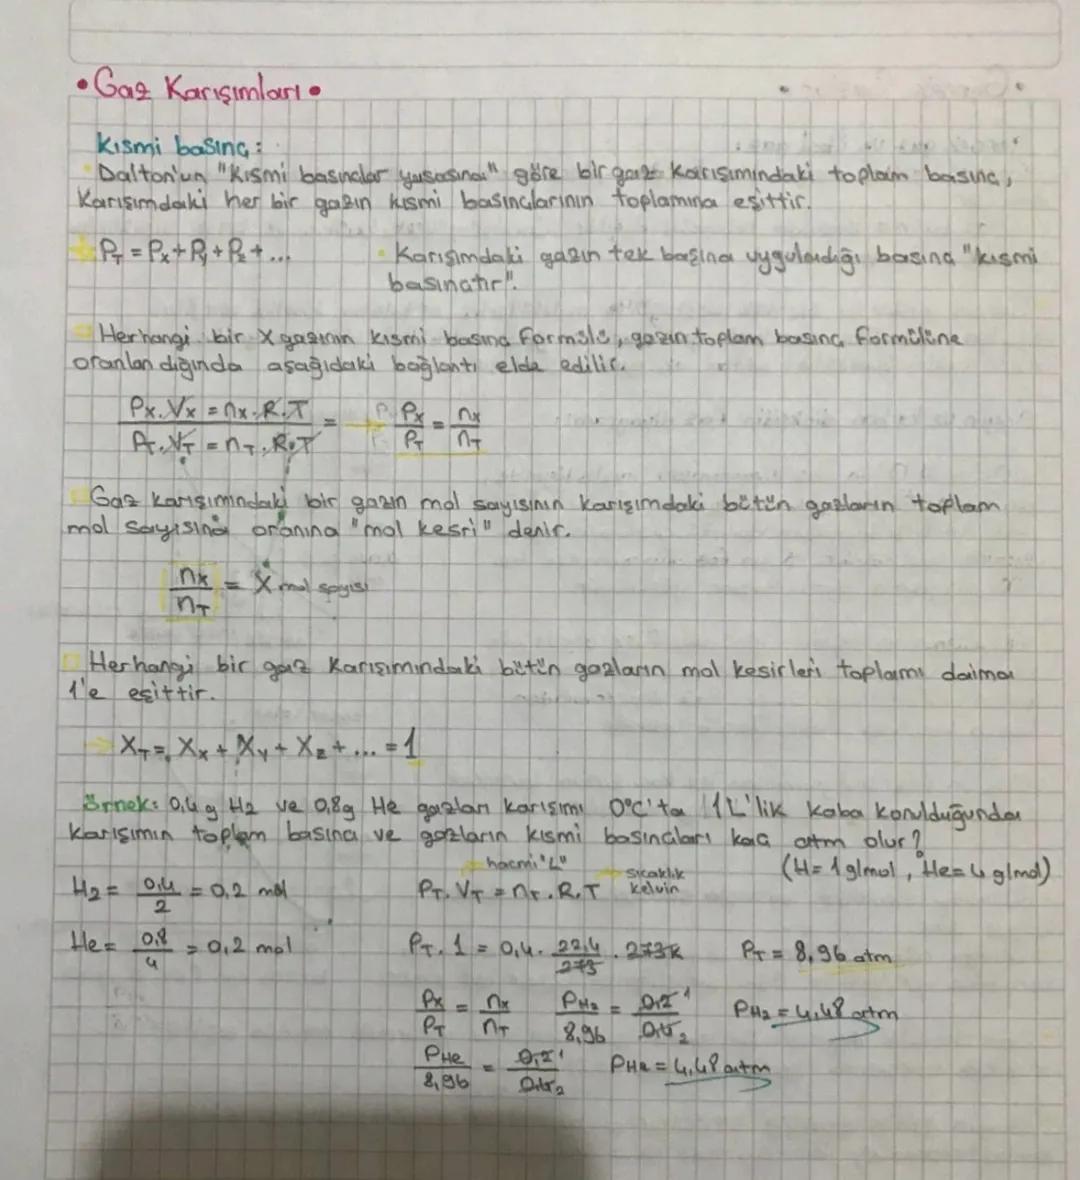 • Gaz Karışımları •
Kısmi basınç:
Dalton'un "Kısmi basınçlar yasasına" göre bir gaz karışımındaki toplam basınç,
Karışımdaki her bir gazın kısmi basınçlarının toplamına eşittir.
P_T = P_X + P_Y + P_Z + ...
Karışımdaki gazın tek başına uyguladığı basınç "kısmi
basınçtır".
Herhangi bir X gazının kısmi basınç formülü, gazın toplam basınç formülüne
oranlandığında aşağıdaki bağlantı elde edilir.
Px.Vx = nx.R.T / P_T.V_T = n_T.R.T = → Px/P_T = nx/n_T
Gaz karışımındaki bir gazın mol sayısının karışımdaki bütün gazların toplam
mol sayısına oranına "mol kesri" denir.
nx/n_T = X mol sayısı
Herhangi bir gaz karışımındaki bütün gazların mol kesirleri toplamı daima
1'e eşittir.
→ X_T = X_X + X_Y + X_Z + ... = 1
Örnek: 0,4 g H2 ve 0,8g He gazları karışımı 0°C'ta 1L'lik kaba konulduğunda
karışımın toplam basıncı ve gazların kısmi basınçları kaç atm olur?
(H= 1 g/mol, He= 4 g/mol)
hacmi "L"
sıcaklık
kelvin
H2 = 0,4/2 = 0,2 mol P_T.V_T = n_T.R.T
He = 0,8/4 = 0,2 mol P_T.1 = 0,4.22,4/273.273K P_T = 8,96 atm
Px/P_T = nx/n_T P_H2/8,96 = 0,2 1/0,4 2 P_H2 = 4,48 atm
P_He/8,96 = 0,2 1/0,4 2 P_He = 4,48 atm